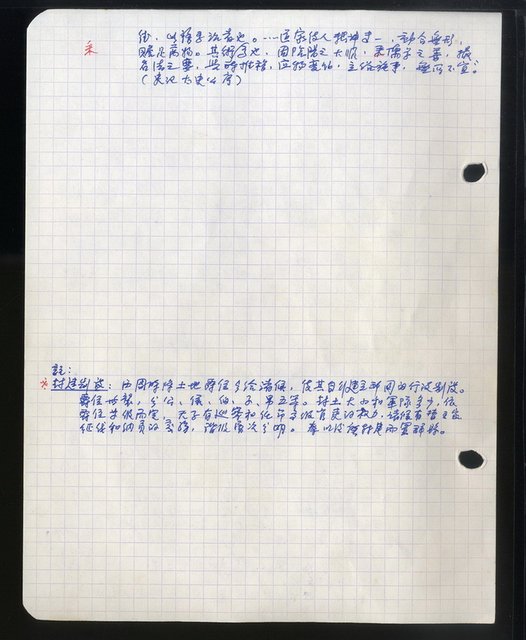 德，以譁乎說者也。……道家使人精神專一，動合無形，
贍足萬物。其術為也，因陰陽之大順，采儒墨之善，撮
采
名法之要，與時推移，應物變化，立俗施事，無所不宜。"
(史記太史公序)
註：
封建制度：西周時將土地爵位分給諸侯，使其自行建立邦國的行政制度。
爵位世襲，分公、侯、伯、子、男五等。封土大小和軍隊多少，依
爵位等級而定。天子有巡察和任命等級官員的權力，諸侯有替王室
征伐和納貢的義務，諸級層次分明。秦以後廢封建而置郡縣。